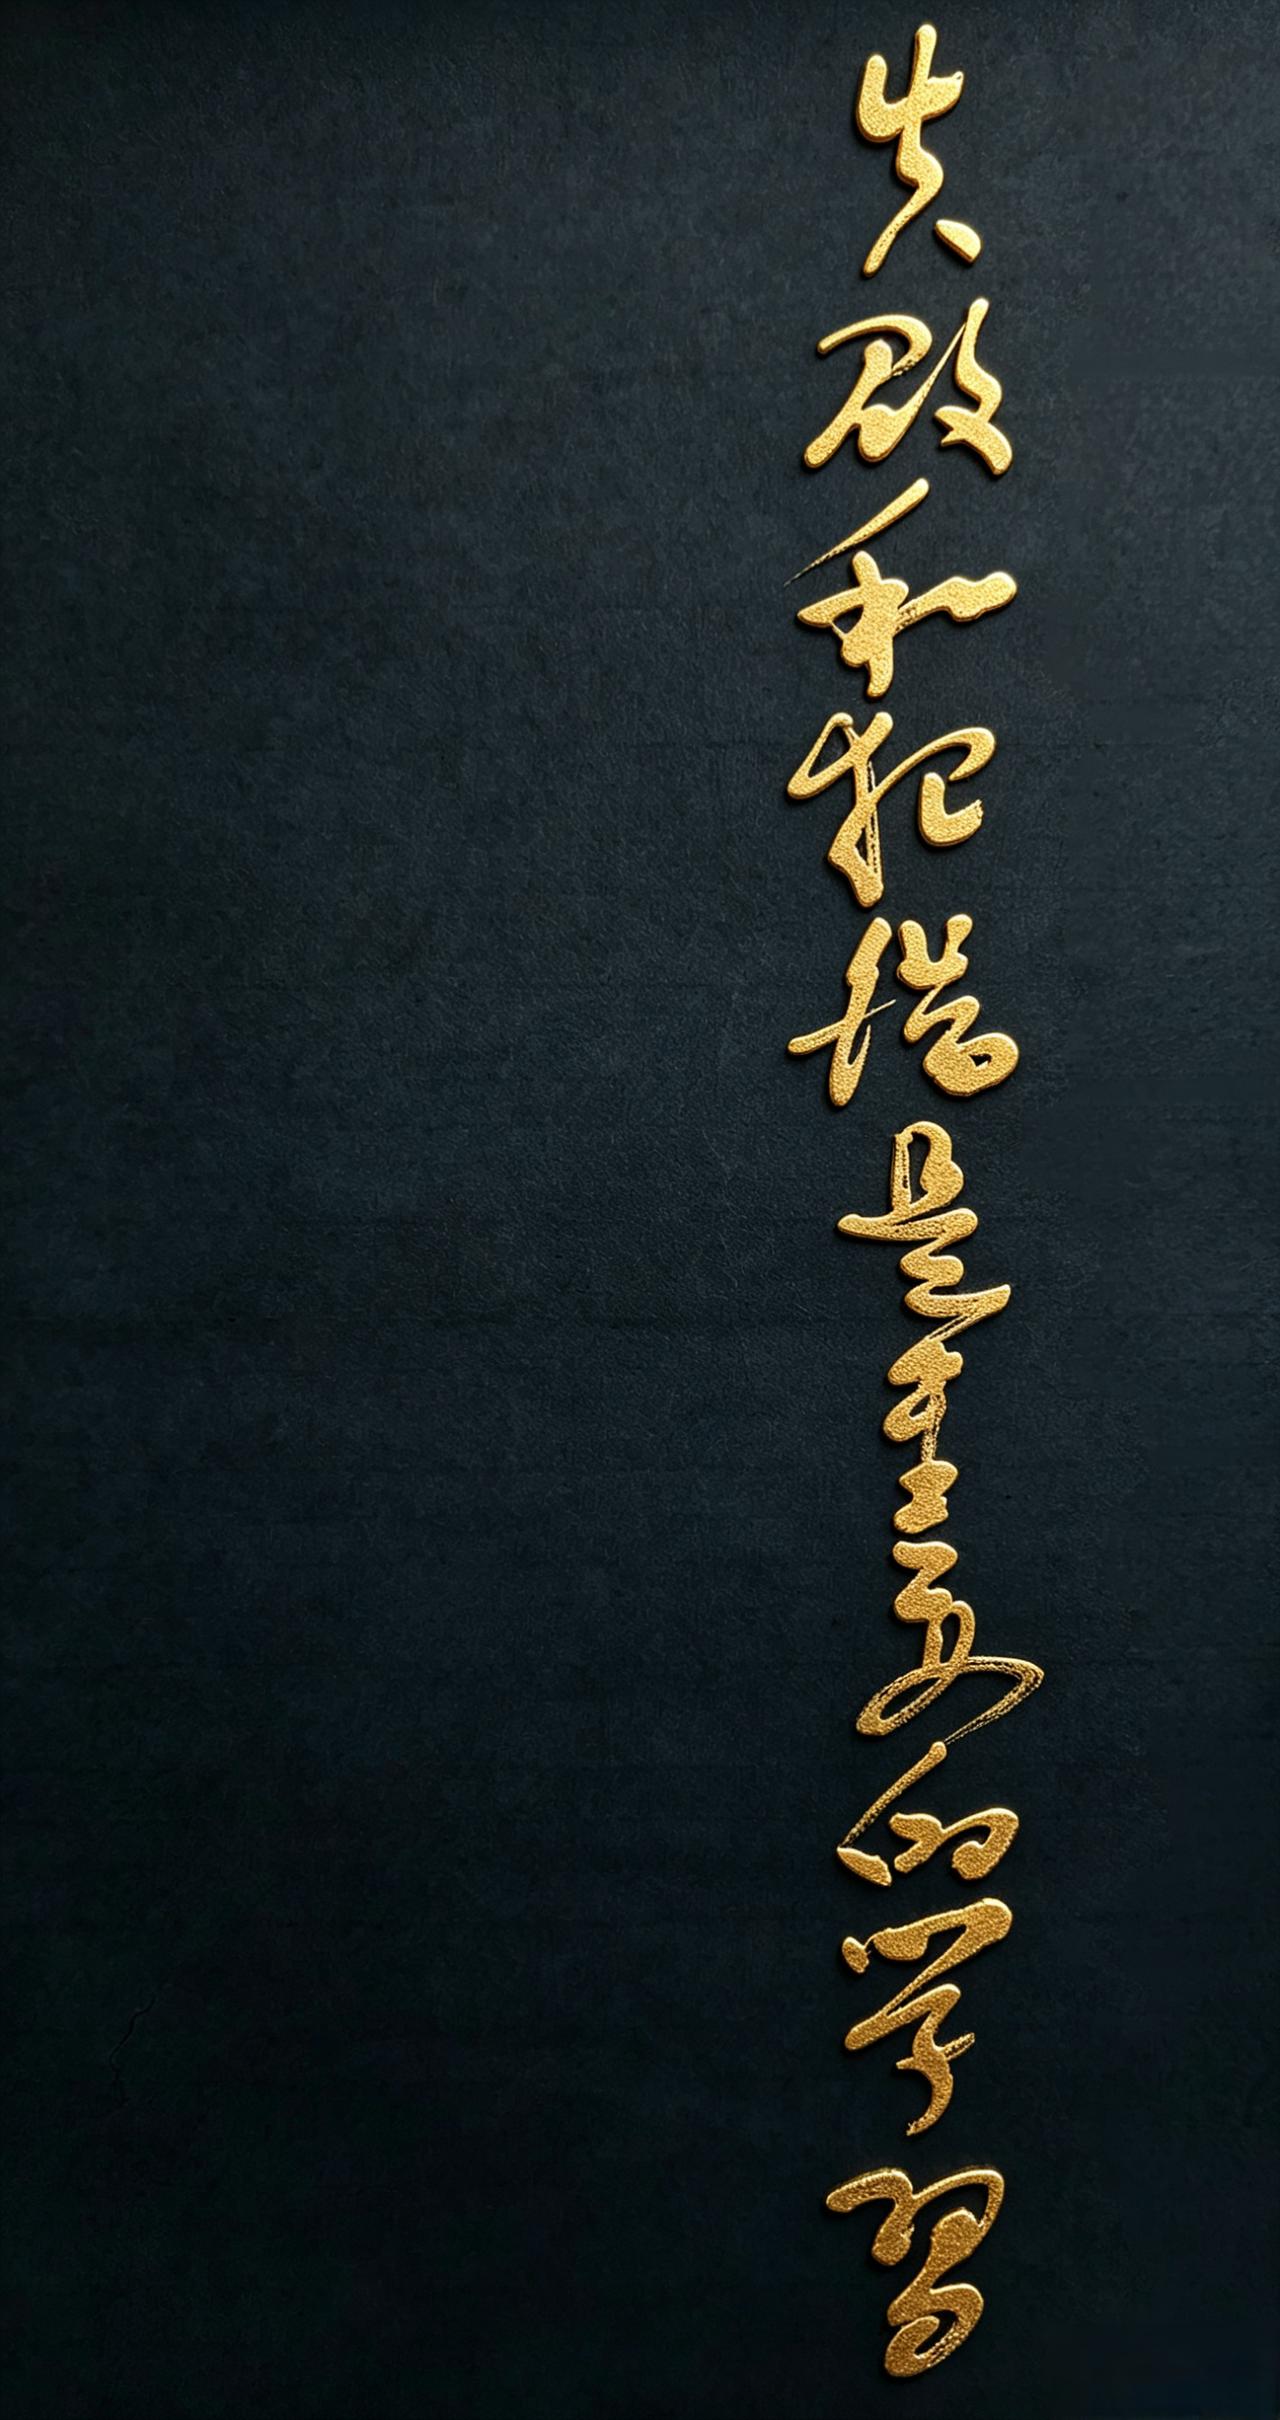 失败和犯错是重要的学习